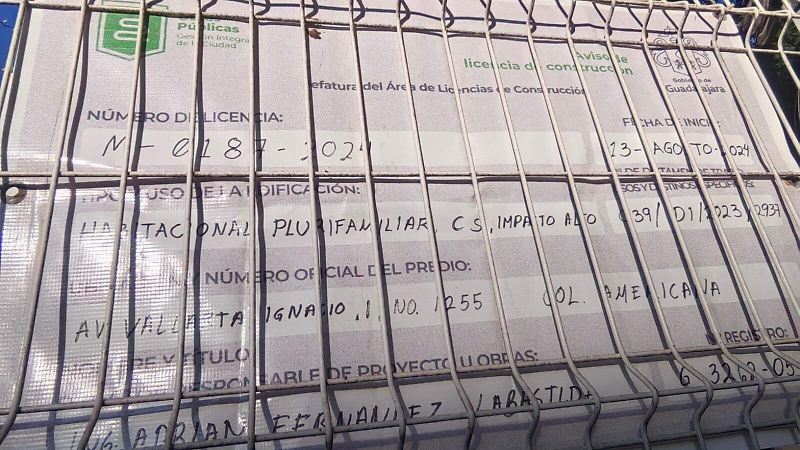 Públicas
Gestión Integral
de la Ciudad
Aviso de
licencia de construcción
Jefatura del Área de Licencias de Construcción
Gobierno de
Guadalajara
NÚMERO DE LICENCIA:
FECHA DE INICIO:
N-0187-2024
13-AGOSTO-2024
TIPO Y USO DE LA EDIFICACIÓN:
USOS Y DESTINOS ESPECÍFICOS:
HABITACIONAL PLURIFAMILIAR, CS, IMPATO ALTO
039/D1/2023/2937
NÚMERO OFICIAL DEL PREDIO:
AV VALLARTA IGNACIO, L, NO. 1255 COL. AMERICANA
NOMBRE Y TÍTULO
RESPONSABLE DE PROYECTO U OBRAS:
REGISTRO:
ING. ADRIAN FERNANDEZ LABASTIDA